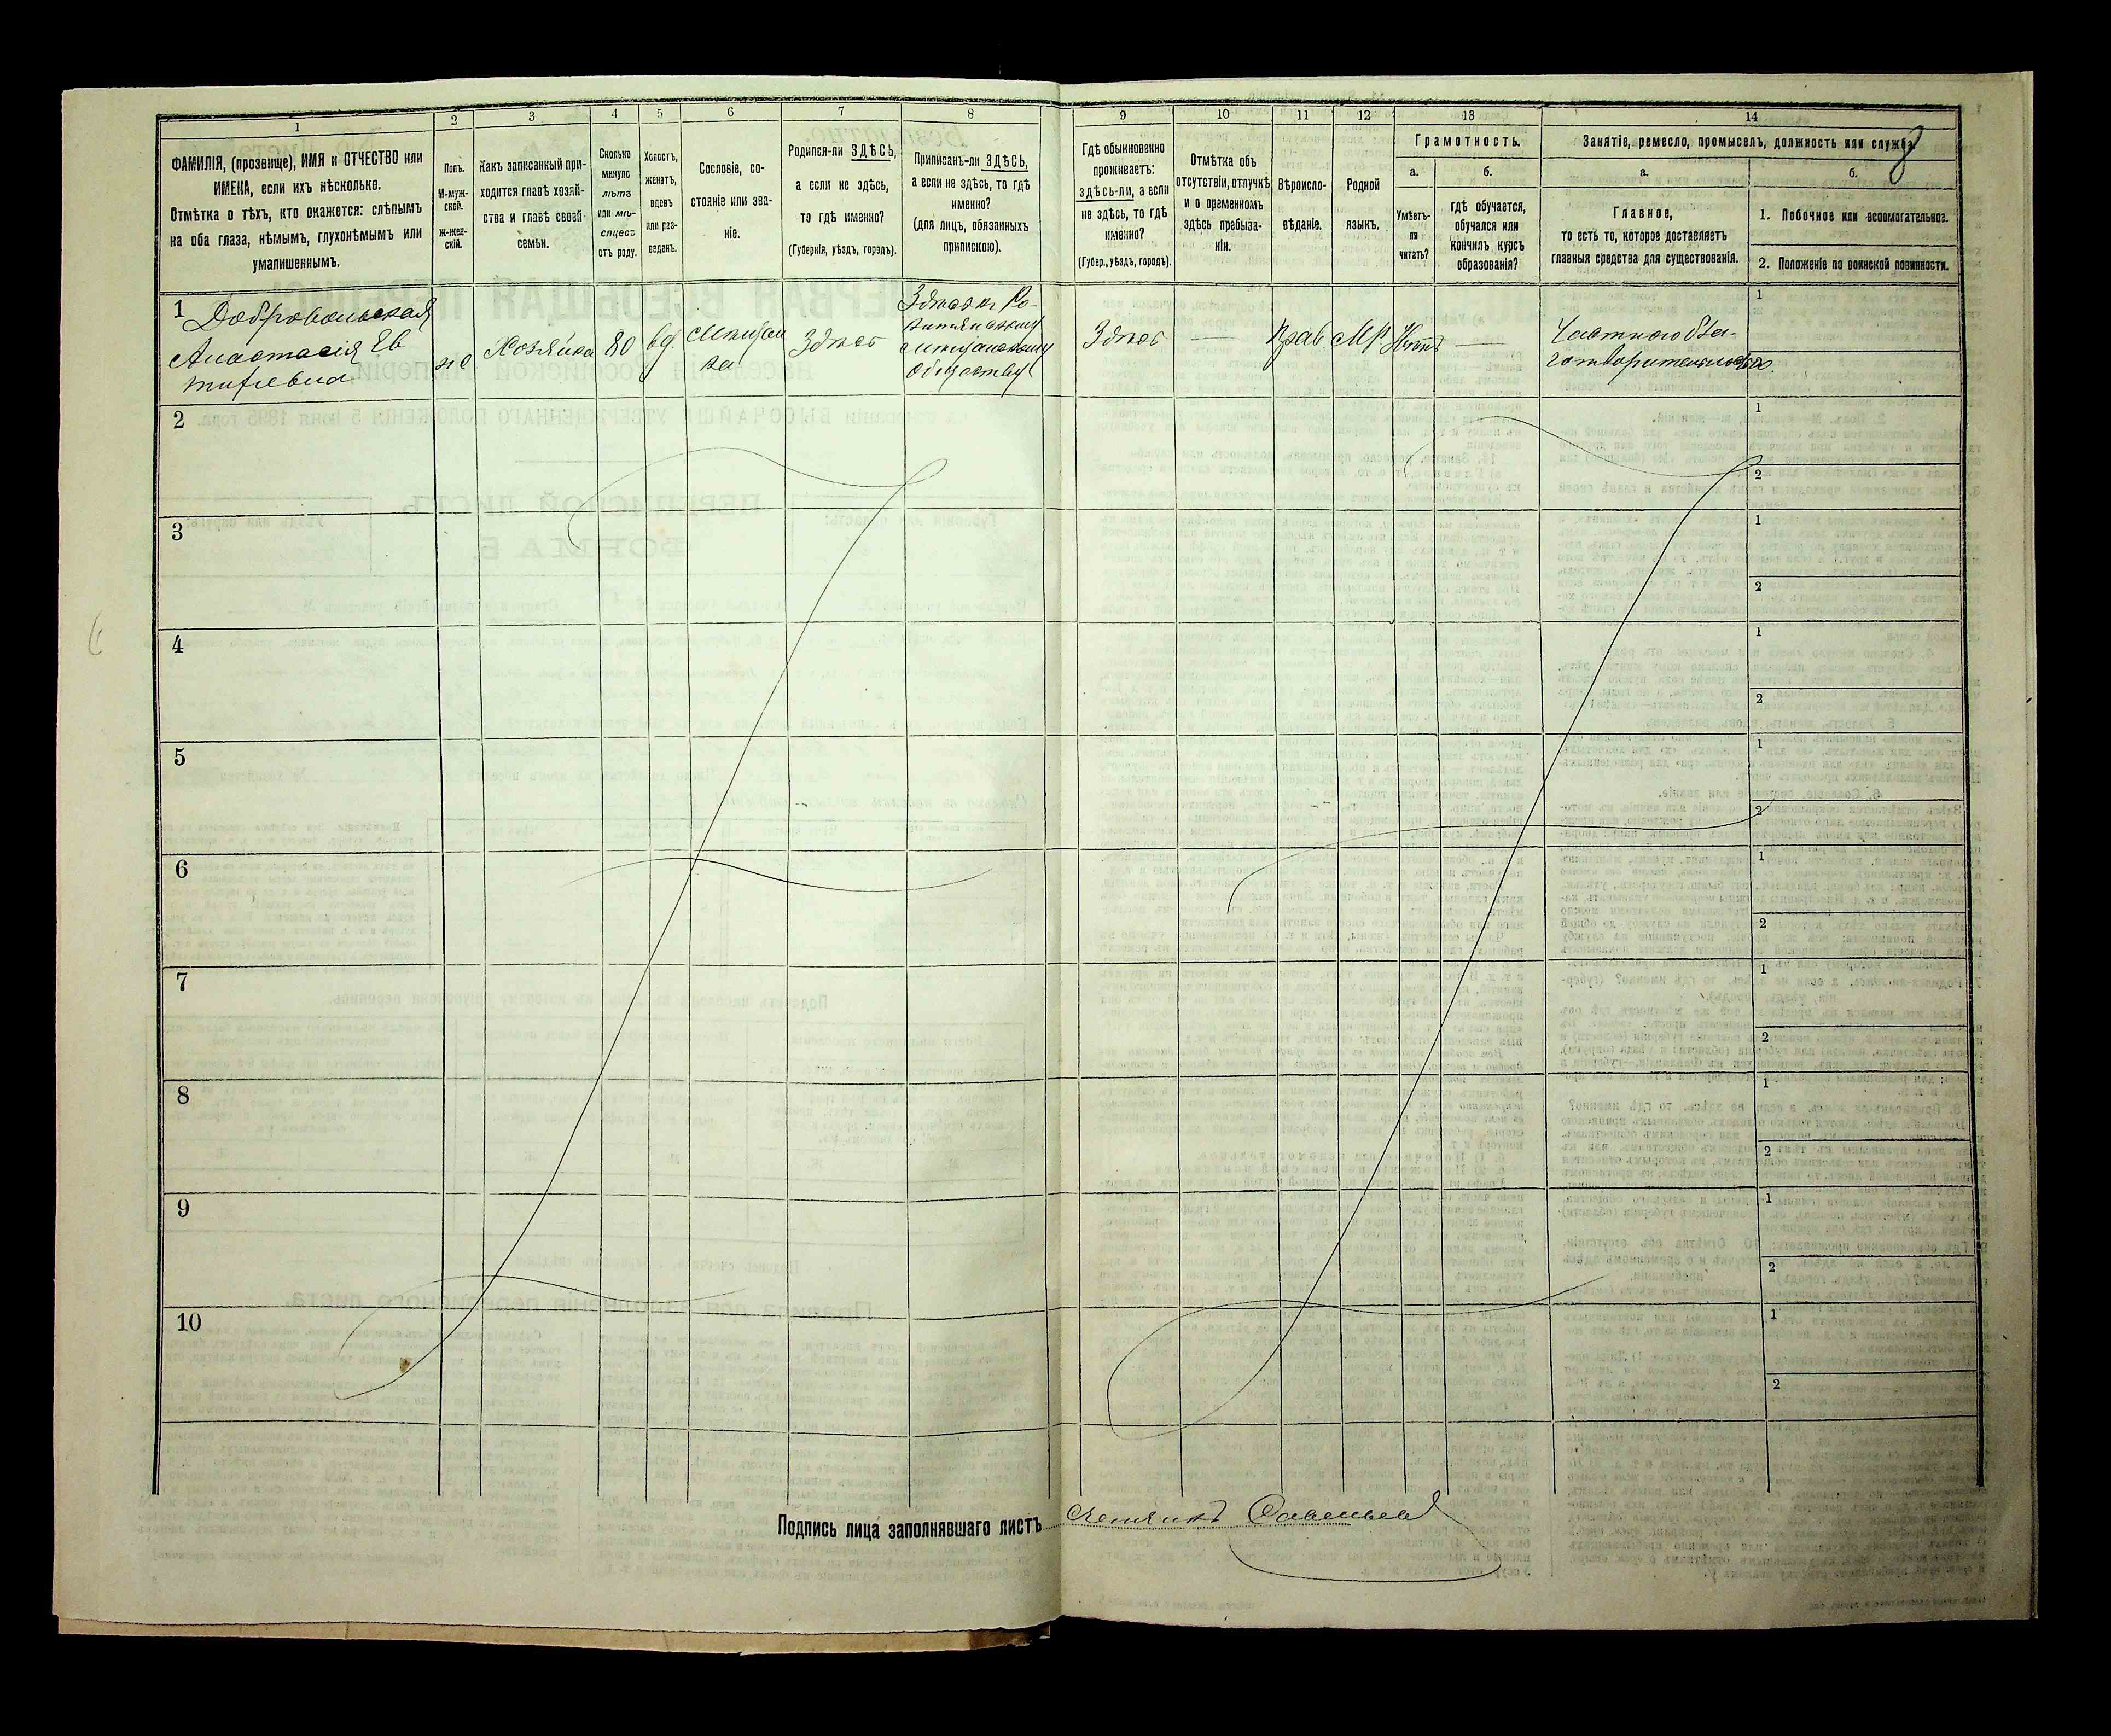 1
2
3
4
5
6
7
8
9
10
11
12
13
14
8
ФАМИЛІЯ, (прозвище), ИМЯ и ОТЧЕСТВО или
ИМЕНА, если ихъ нѣсколько.
Отмѣтка о тѣхъ, кто окажется: слѣпымъ
на оба глаза, нѣмымъ, глухонѣмымъ или
умалишеннымъ.
Полъ.
М-муж-
ской.
ж-жен-
скій.
Какъ записанный при-
ходится главѣ хозяй-
ства и главѣ своей
семьи.
Сколько
минуло
лѣтъ
или мѣ-
сяцевъ
отъ роду.
Холостъ,
женатъ,
вдовъ
или раз-
веденъ.
Сословіе, со-
стояніе или зва-
ніе.
Родился-ли ЗДѢСЬ,
а если не здѣсь,
то гдѣ именно?
(Губернія, уѣздъ, городъ).
Приписанъ-ли ЗДѢСЬ,
а если не здѣсь, то гдѣ
именно?
(для лицъ, обязанныхъ
припискою).
Гдѣ обыкновенно
проживаетъ:
здѣсь-ли, а если
не здѣсь, то гдѣ
именно?
(Губер., уѣздъ, городъ).
Отмѣтка объ
отсутствіи, отлучкѣ
и о временномъ
здѣсь пребыва-
ніи.
Вѣроиспо-
вѣданіе.
Родной
языкъ.
Грамотность.
а.
Умѣетъ-
ли
читать?
б.
гдѣ обучается,
обучался или
кончилъ курсъ
образованія?
Занятіе, ремесло, промыселъ, должность или служба.
а.
Главное,
то есть то, которое доставляетъ
главныя средства для существованія.
б.
1. Побочное или вспомогательное.
2. Положеніе по воинской повинности.
1
Добровольская
Анастасія Ев
тифіевна
же
Хозяйка
80
вд
Мѣщан
ка
Здѣсь
Здѣсь къ
мѣщанскому
обществу
Здѣсь
—
Прав
МР
Нѣтъ
—
Частною бла-
готворительностью
1
2
1
2
3
1
2
4
1
2
5
1
2
6
1
2
7
1
2
8
1
2
9
1
2
10
1
2
Подпись лица заполнявшаго листъ
6